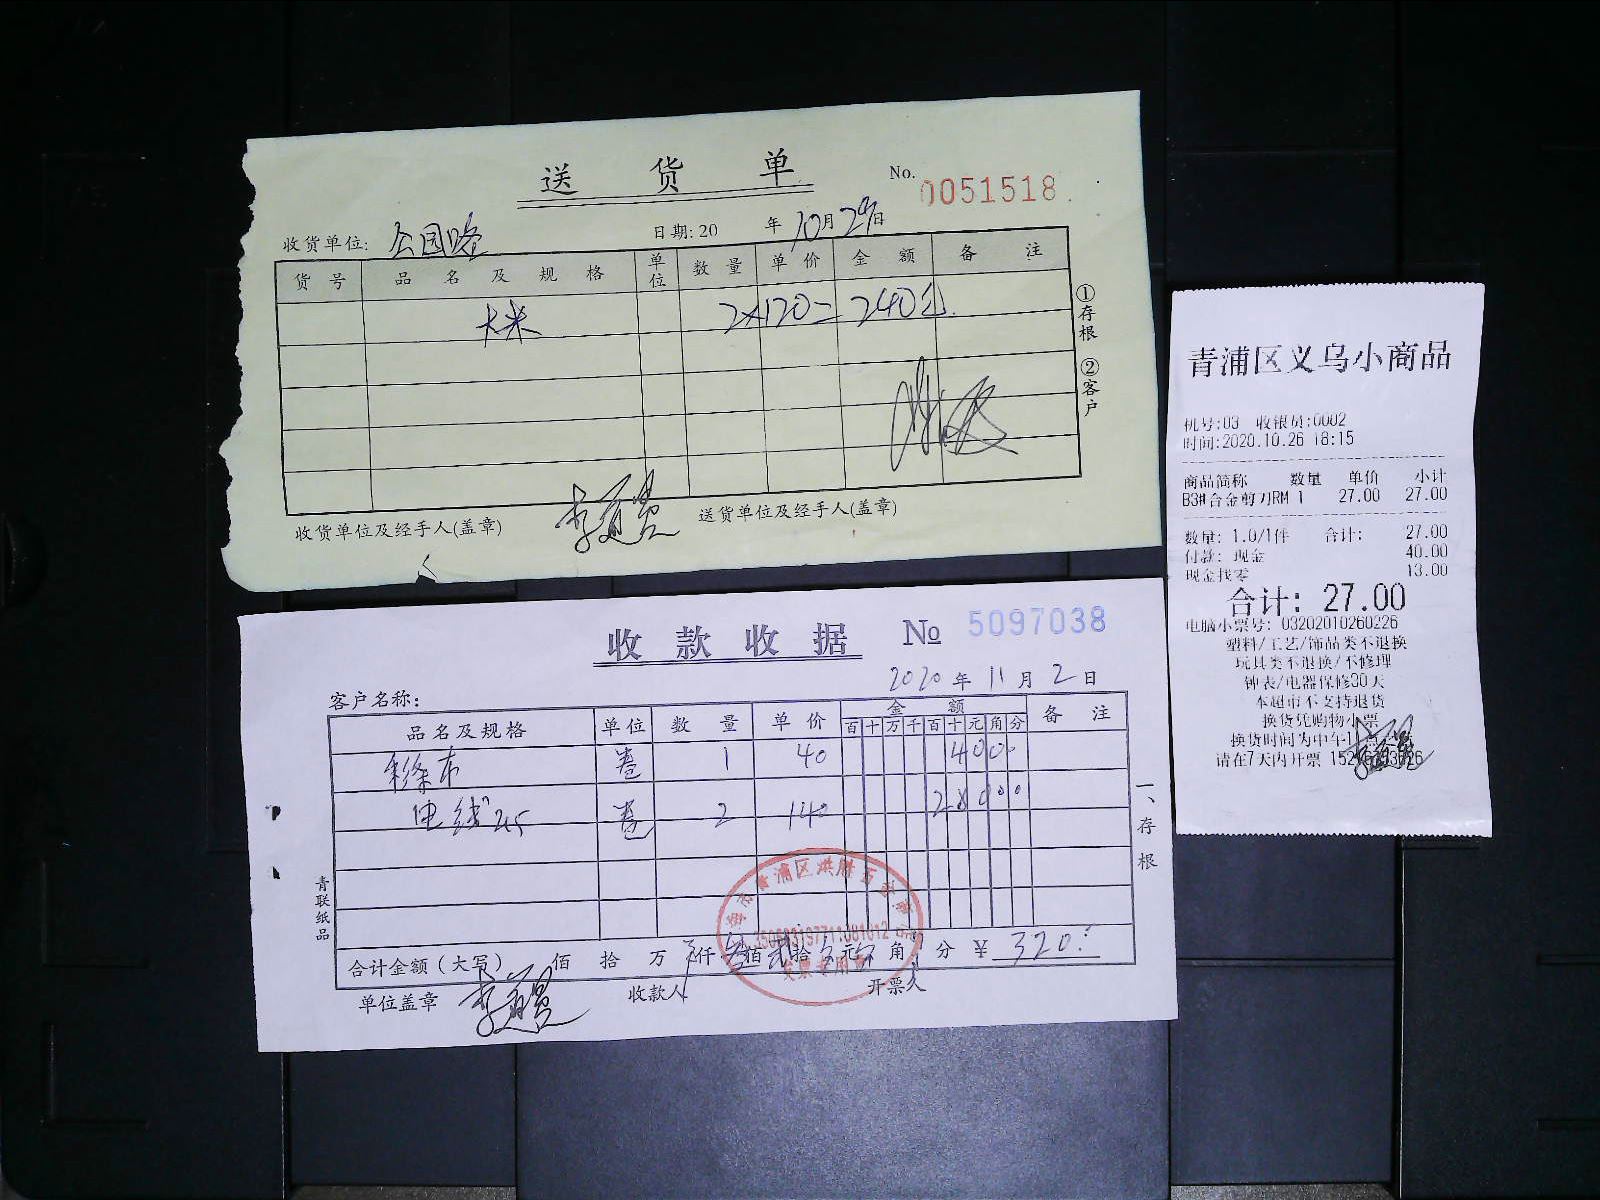 送 货 单
No. 0051518
收货单位: 公园路 日期: 20 年 10月29日
货号 品名及规格 单位 数量 单价 金额 备注
大米 2×120= 240元
①存根 ②客户
收货单位及经手人(盖章) 送货单位及经手人(盖章)
收款收据 № 5097038
2020年11月2日
客户名称:
品名及规格 单位 数量 单价 金额 备注
百十万千百十元角分
彩条布 卷 1 40 4000
电线2.5 卷 2 140 28000
一、存根
青联纸品
合计金额(大写) 佰 拾 万 仟 佰 拾 元 角 分 ¥ 320.
单位盖章 收款人 开票人
发票专用章
青浦区义乌小商品
机号:03 收银员:0002
时间:2020.10.26 18:15
商品简称 数量 单价 小计
B3#合金剪刀RM 1 27.00 27.00
数量: 1.0/1件 合计: 27.00
付款: 现金 40.00
现金找零 13.00
合计: 27.00
电脑小票号: 03202010260226
塑料/工艺/饰品类不退换
玩具类不退换/不修理
钟表/电器保修30天
本超市不支持退货
换货凭购物小票
换货时间为中午1
请在7天内开票